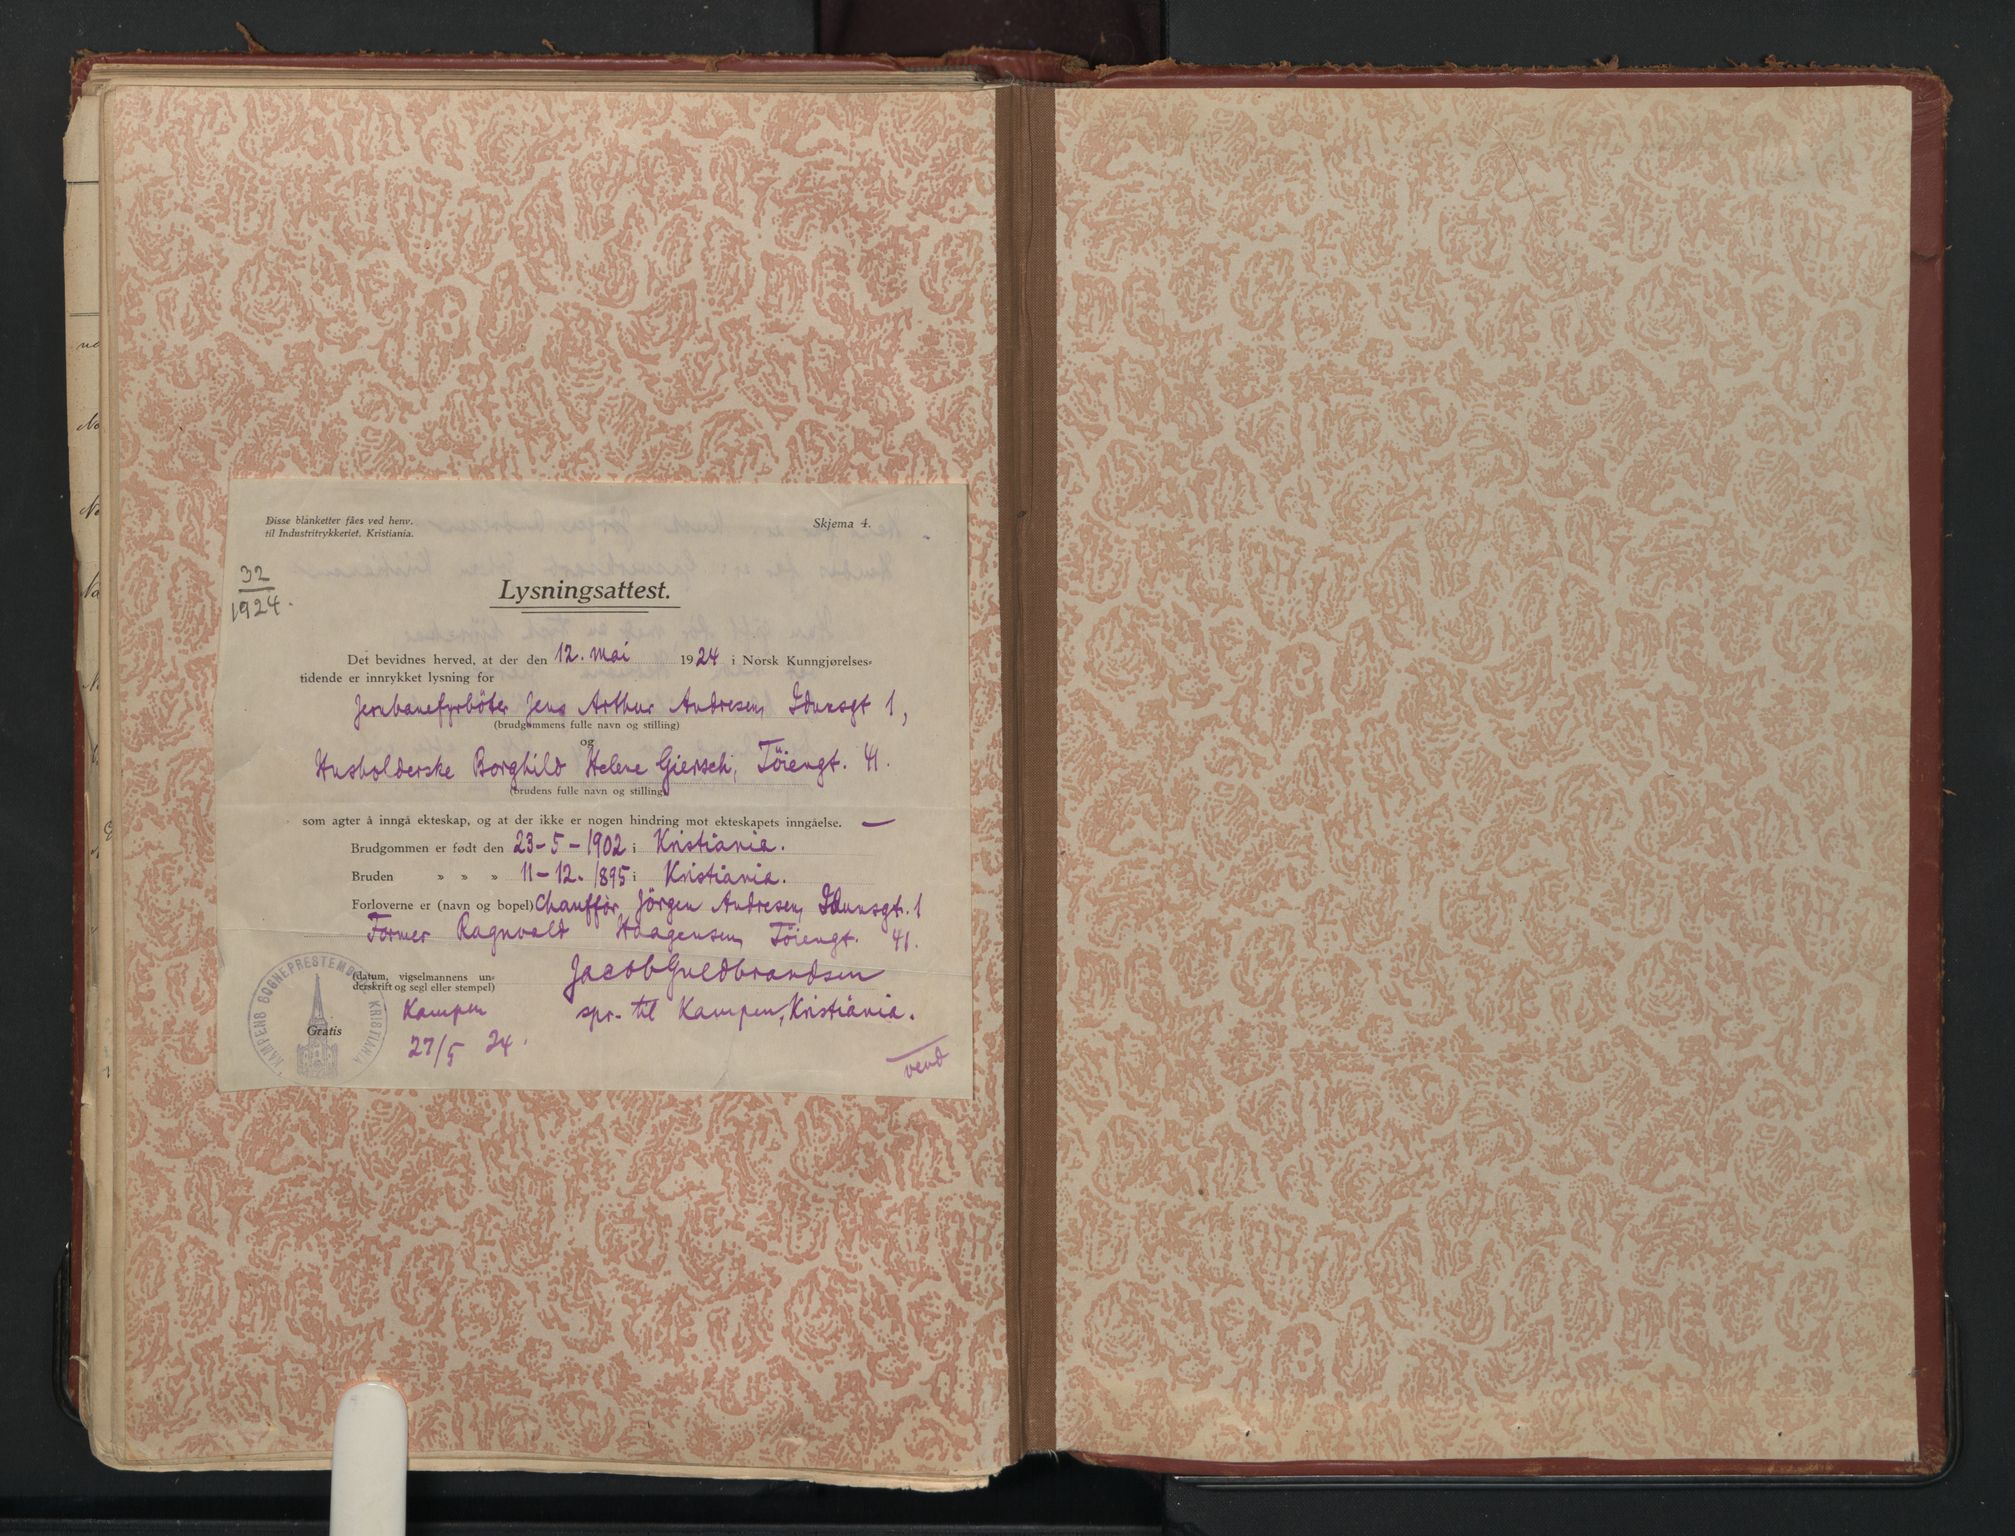 Disse blanketter fåes ved henv.
til Industritrykkeriet, Kristiania.
Skjema 4.
32
1924.
Lysningsattest.
Det bevidnes herved, at der den 12. mai 1924 i Norsk Kunngjørelses=
tidende er innrykket lysning for
Jernbanefyrböter Jens Arthur Andresen, Idunsgt 1,
(brudgommens fulle navn og stilling)
og
Husholderske Borghild Helene Giersch, Töiengt. 41.
(brudens fulle navn og stilling)
som agter å inngå ekteskap, og at der ikke er nogen hindring mot ekteskapets inngåelse. —
Brudgommen er født den 23-5-1902 i Kristiania.
Bruden » » » 11-12. 1895 i Kristiania.
Forloverne er (navn og bopel) Chauffør Jörgen Andresen, Idunsgt. 1
Former Ragnvald Haagensen, Töiengt. 41.
(datum, vigselmannens un=
derskrift og segl eller stempel)
Jacob Guldbrandsen
Kampen spr. til Kampen, Kristiania.
Gratis
27/5 24.
vend
KAMPENS SOGNEPRESTEMBEDE KRISTIANIA